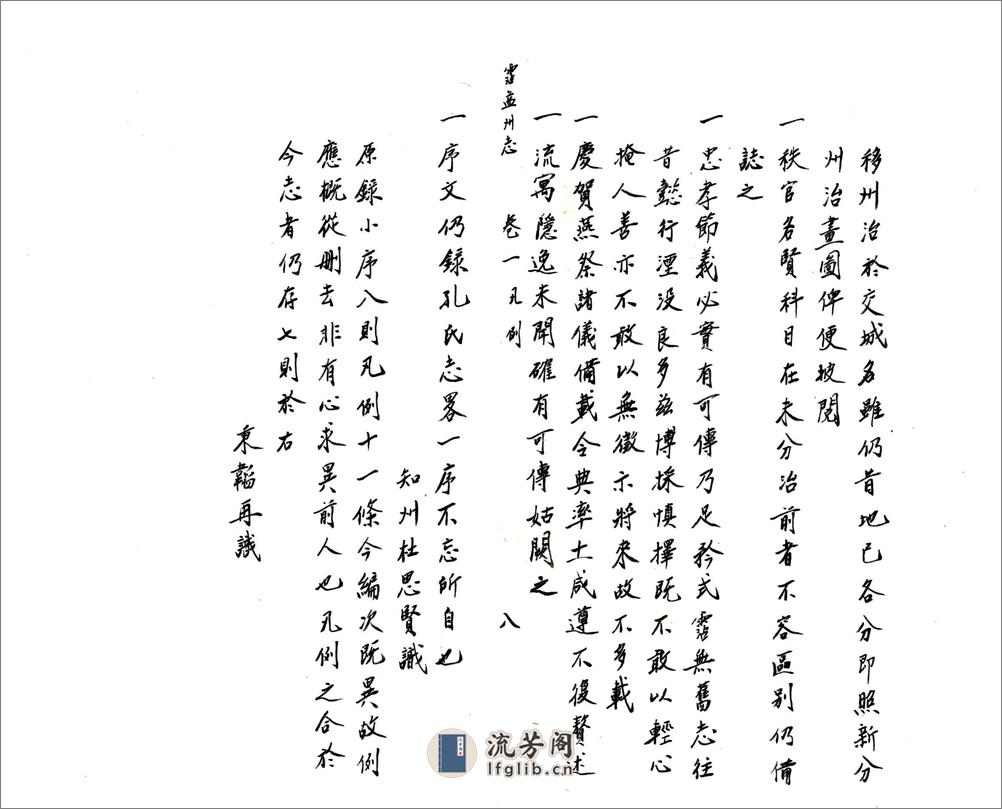 移州治於交城名雖仍昔地已各分即照新分
州治畫圖俾便披閱
一秩官名賢科目在未分治前者不容區別仍備
誌之
一忠孝節義必實有可傳乃足矜式霑無舊志往
昔懿行湮没良多兹博採慎擇既不敢以輕心
掩人善亦不敢以無徵示將來故不多載
一慶賀燕祭諸儀備載令典率土咸遵不復贅述
一流寓隱逸未聞確有可傳姑闕之
霑益州志 卷一凡例 八
一序文仍錄孔氏志畧一序不忘所自也
知州杜思賢識
原錄小序八則凡例十一條今編次既異故例
應概從刪去非有心求異前人也凡例之合於
今志者仍存七則於右
秉韜再識
流芳阁
lfglib.cn